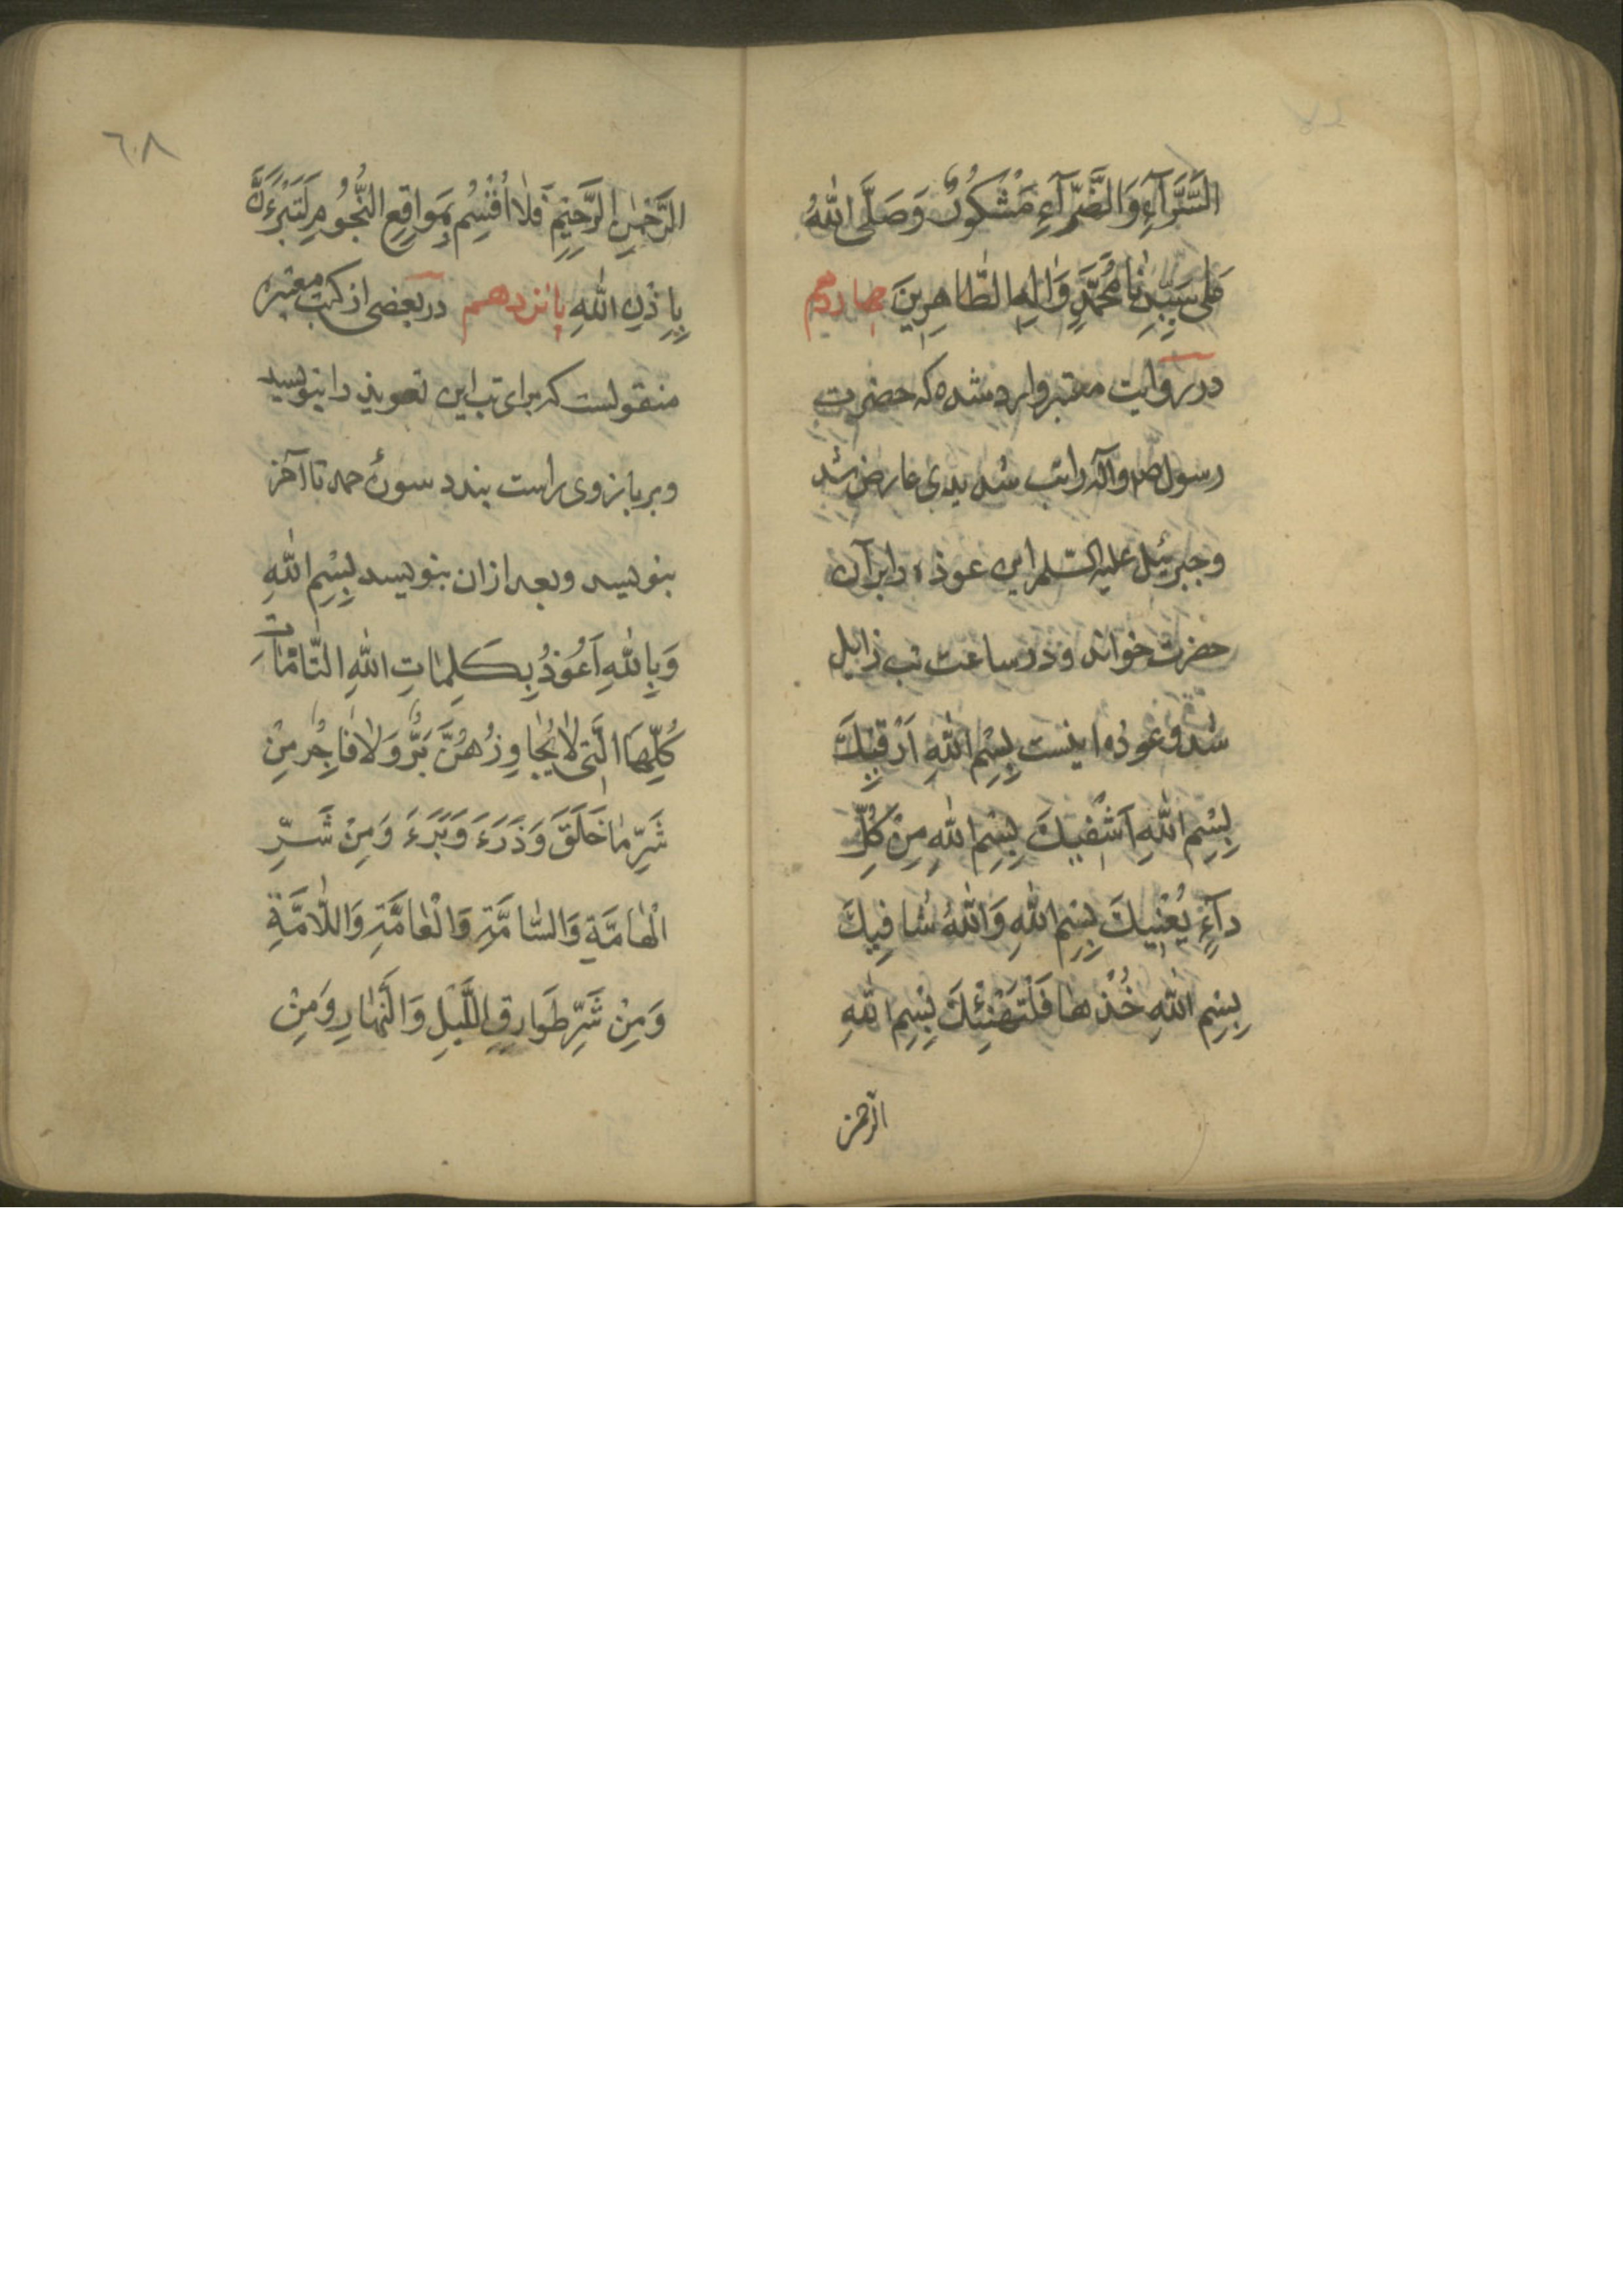 السَّرَّآءِ وَالضَّرَّآءِ مَشْكُورٌ وَصَلَّى اللّٰهُ
عَلٰى سَيِّدِنٰا مُحَمَّدٍ وَاٰلِهِ الطّٰاهِرِينَ چهاردهم
در روايت معتبر وارد شده كه حضرت
رسول ص و آله را تب شديدى عارض شد
و جبرئيل عليه السّلم اين عوذه را بر آن
حضرت خواند و در ساعت تب زايل
شد و عوذه اينست بِسْمِ اللّٰهِ اَرْقيٖكَ
بِسْمِ اللّٰهِ اَشْفيٖكَ بِسْمِ اللّٰهِ مِنْ كُلِّ
دآءٍ يُعْنيٖكَ بِسْمِ اللّٰهِ وَاللّٰهُ شٰافِيكَ
بِسْمِ اللّٰهِ خُذْهٰا فَلْتَهْنِئْكَ بِسْمِ اللّٰهِ
الرّحمن
٦٠٨
الرَّحْمٰنِ الرَّحِيمِ فَلٰا اُقْسِمُ بِمَوٰاقِعِ النُّجُومِ لَتَبْرَءَنَّ
بِاِذْنِ اللّٰهِ پانزدهم در بعضى از كتب معتبره
منقولست كه براى تب اين تعويذ را بنويسد
و بر بازوى راست بندد سورۀ حمد تا آخر
بنويسد و بعد ازان بنويسد بِسْمِ اللّٰهِ
وَبِاللّٰهِ اَعُوذُ بِكَلِمٰاتِ اللّٰهِ التّٰامّٰاتِ
كُلِّهَا الَّتى لٰا يُجٰاوِزُهُنَّ بَرٌّ وَلٰا فٰاجِرٌ مِنْ
شَرِّ مٰا خَلَقَ وَذَرَءَ وَبَرَءَ وَمِنْ شَرِّ
الْهٰامَّةِ وَالسّٰامَّةِ وَالْعٰامَّةِ وَاللّٰامَّةِ
وَمِنْ شَرِّ طَوٰارِقِ اللَّيْلِ وَالنَّهٰارِ وَمِنْ